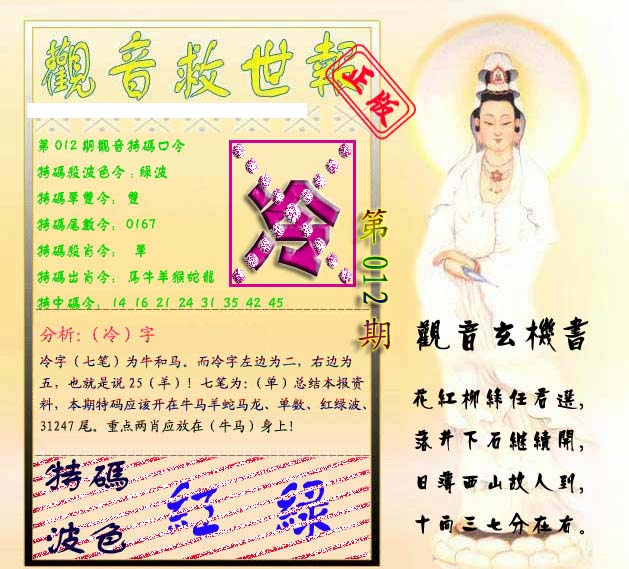 觀音救世報
正版
第012期觀音特碼口令
特碼殺波色令:綠波
特碼單雙令: 雙
特碼尾數令: 0167
特碼殺肖令: 單
特碼出肖令: 馬牛羊猴蛇龍
特中碼令: 14 16 21 24 31 35 42 45
冷
第012期
分析:（冷）字
冷字（七笔）为牛和马。而冷字左边为二，右边为
五，也就是说25（羊）！七笔为:（单）总结本报资
料，本期特码应该开在牛马羊蛇马龙、单数、红绿波、
31247尾。重点两肖应放在（牛马）身上！
特碼
波色
紅 綠
觀音玄機書
花紅柳綠任君選，
落井下石繼續開，
日薄西山故人到，
十面三七分在右。